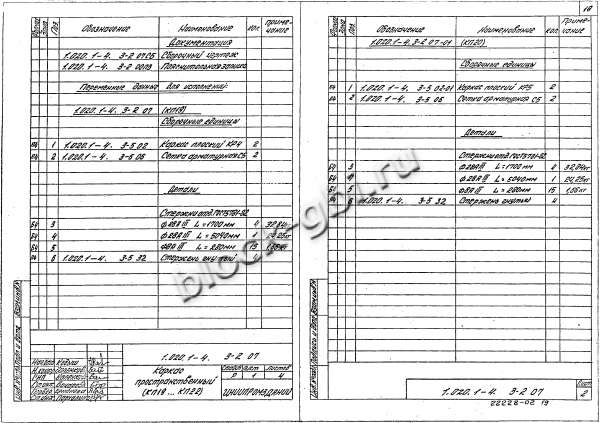 Формат
Зона
Поз.
Обозначение
Наименование
Кол.
Примечание
Документация
1.020.1-4. 3-2 07СБ Сборочный чертеж
1.020.1-4. 3-2 00ПЗ Пояснительная записка
Переменные данные для исполнений:
1.020.1-4. 3-2 07 (КП19)
Сборочные единицы
б4 1 1.020.1-4. 3-5 02 Каркас плоский КР4 2
б4 2 1.020.1-4. 3-5 06 Сетка арматурная С5 2
Детали
Стержни отд. ГОСТ5781-82
б4 3 ф28АIII L=1700мм 4
б4 4 ф28АIII L=5040мм 1
б4 5 ф8АIII L=280мм 15
6 1.020.1-4. 3-5 32 Стержень гнутый 4
1.020.1-4. 3-2 07
Каркас
пространственный
(КП19 ... КП22)
Стадия Лист Листов
Р 1 4
ЦНИИПРОМЗДАНИЙ
18
Формат
Зона
Поз.
Обозначение
Наименование
Кол.
Примечание
1.020.1-4. 3-2 07-01 (КП20)
Сборочные единицы
б4 1 1.020.1-4. 3-5 02-01 Каркас плоский КР5 2
б4 2 1.020.1-4. 3-5 06 Сетка арматурная С5 2
Детали
Стержни отд. ГОСТ5781-82
б4 3 ф28АIII L=1700мм
б4 4 ф28АIII L=5040мм 1 24,25кг
б4 5 ф8АIII L=280мм 15
б4 6 1.020.1-4. 3-5 32 Стержень гнутый 4
1.020.1-4. 3-2 07
Лист
2
22228-02 19
block-gbi.ru